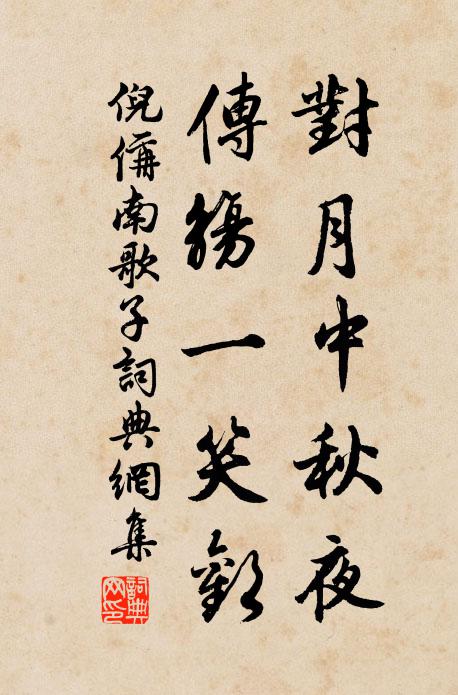 對月中秋夜
傳觴一笑歡
倪偁南歌子詞典網集
詞典網印